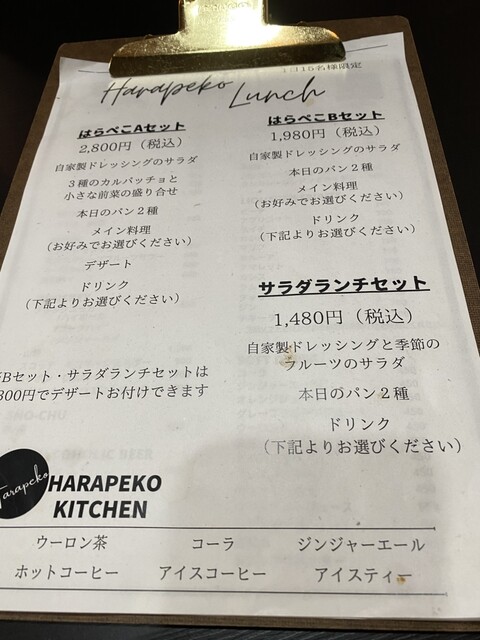 1日15名様限定
Harapeko Lunch
はらぺこAセット
2,800円（税込）
自家製ドレッシングのサラダ
３種のカルパッチョと
小さな前菜の盛り合せ
本日のパン２種
メイン料理
（お好みでお選びください）
デザート
ドリンク
（下記よりお選びください）
はらぺこBセット
1,980円（税込）
自家製ドレッシングのサラダ
本日のパン２種
メイン料理
（お好みでお選びください）
ドリンク
（下記よりお選びください）
サラダランチセット
1,480円（税込）
自家製ドレッシングと季節の
フルーツのサラダ
本日のパン２種
ドリンク
（下記よりお選びください）
Bセット・サラダランチセットは
300円でデザートお付けできます
Harapeko
HARAPEKO
KITCHEN
ウーロン茶 コーラ ジンジャーエール
ホットコーヒー アイスコーヒー アイスティー